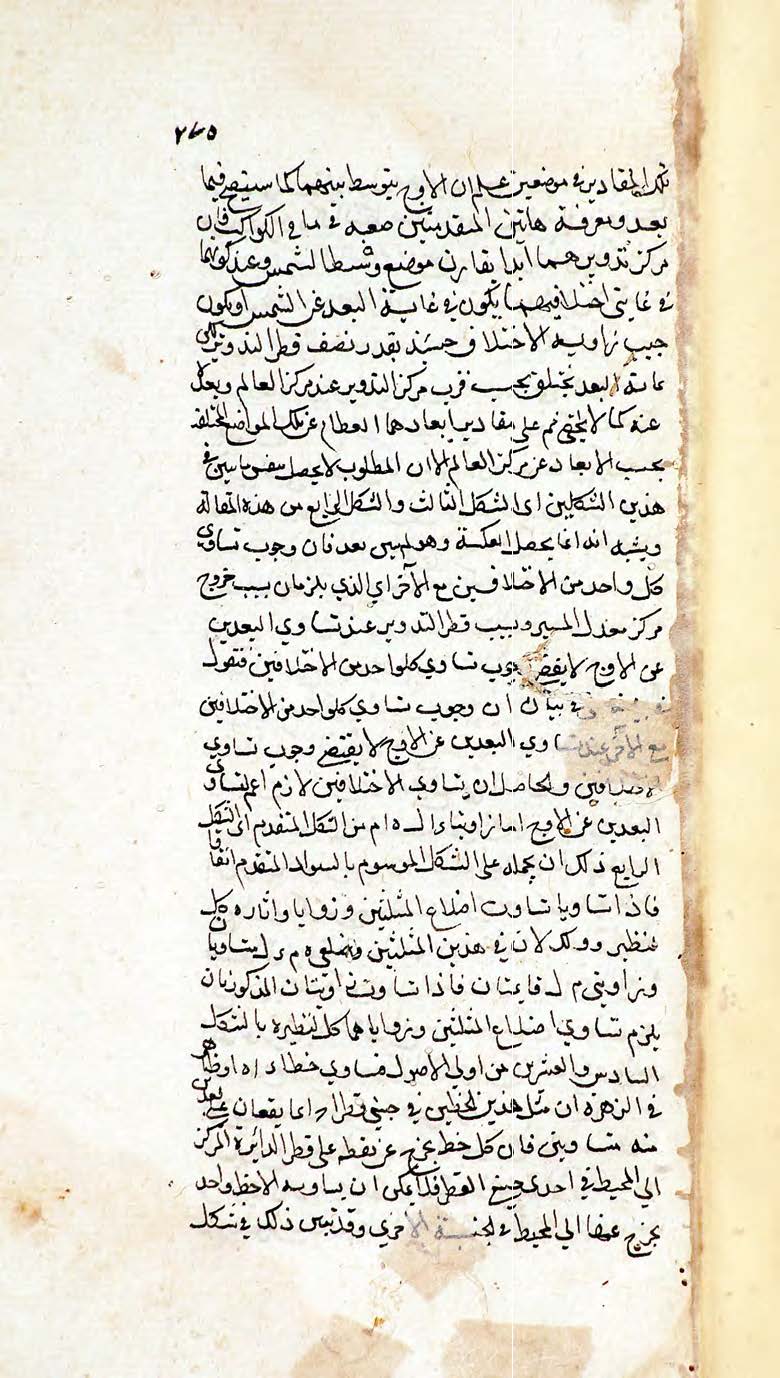 ٢٧٥
تلك المقادير في موضعين علم ان الاوج يتوسط بينهما كما سيتضح فيما
بعد ومعرفة هاتين المقدمتين صعبه في ما في الكواكب فان
مركز تدويرهما ابدا يقارن موضع وسط الشمس وعند كونهما
في غايتي اختلافيهما يكون في غاية البعد عن الشمس اويكون
جيب زاويه الاختلاف حينئذ بقدر نصف قطر التدوير
غاية البعد يختلف بحسب قرب مركز التدوير عند مركز العالم وبعده
عنه كما لا يخفى فهم على مقادير ابعادهما العظام عن تلك المواضع المختلفه
بحسب الابعاد عن مركز العالم الا ان المطلوب لا يحصل
هذين الشكلين اى الشكل الثالث والشكل الرابع من هذه المقالة
ويشبه انه انما يحصل بعكسه وهو لم يبين بعد فان وجوب تساوى
كل واحد من الاختلافين مع الآخر اي الذي يلزمان بسبب خروج
مركز معدل المسير وبسبب قطر التدوير عند تساوي البعدين
عن الاوج لا يقتضي وجوب تساوي كلواحد من الاختلافين فنقول
في بيان ان وجوب تساوي كلواحد من الاختلافين
مع الآخر عند تساوي البعدين عن الاوج لا يقتضى وجوب تساوي
الاختلافين والحاصل ان تساوي الاختلافين لازم اعم لتساوى
البعدين عن الاوج اما زاويتا د ا م من الشكل المتقدم اى الشكل
الرابع ذلك ان يحمله على الشكل الموسوم بالسواد المتقدم انفا
فاذا تساويا تساوت اضلاع المثلثين وزوايا واثاره كل
لنظيره وذلك لان في هذين المثلثين ضلعى ه م ه ل متساويان
وزاويتي م ل قايمتان فاذا تساوت زاويتان المذكورتان
يلزم تساوي اضلاع المثلثين وزواياهما كل لنظيره بالشكل
السادس والعشرين من اولي الاصول فساوي خطا د ا ه ا وظاهر
في الزهرة ان مثل هذين الخطين في جنبتي قطر ا ر انما يقعان على بعدين
منه متساويين فان كل خط يخرج عن نقطه على قطر الدائرة المركز
الي المحيط في احدى جنبتي القطر فلا يمكن ان يساويه الا خط واحد
يخرج عنها الي المحيط في الجنبة الاخري وقد تبين ذلك في شكل